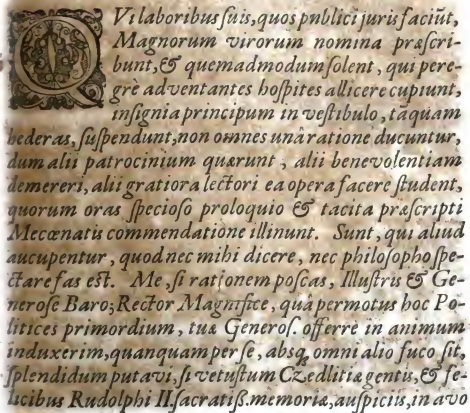 QVi laboribus suis, quos publici juris faciũt,
Magnorum virorum nomina præscri-
bunt, & quemadmodum solent, qui pere-
grè adventantes hospites allicere cupiunt,
insignia principum in vestibulo, tãquam
hederas, suspendunt, non omnes unâ ratione ducuntur,
dum alii patrocinium quærunt, alii benevolentiam
demereri, alii gratiora lectori ea opera facere student,
quorum oras specioso proloquio & tacita præscripti
Mecœnatis commendatione illinunt. Sunt, qui aliud
aucupentur, quod nec mihi dicere, nec philosopho spe-
ctare fas est. Me, si rationem poscas, Illustris & Ge-
nerose Baro; Rector Magnifice, quâ permotus hoc Po-
litices primordium, tuæ Generos. offerre in animum
induxerim, quanquam per se, absq; omni alio fuco sit,
splendidum putavi, si vetustum Czedlitiæ gentis, & fe-
licibus Rudolphi II. sacratiss. memoriæ, auspiciis, in avo